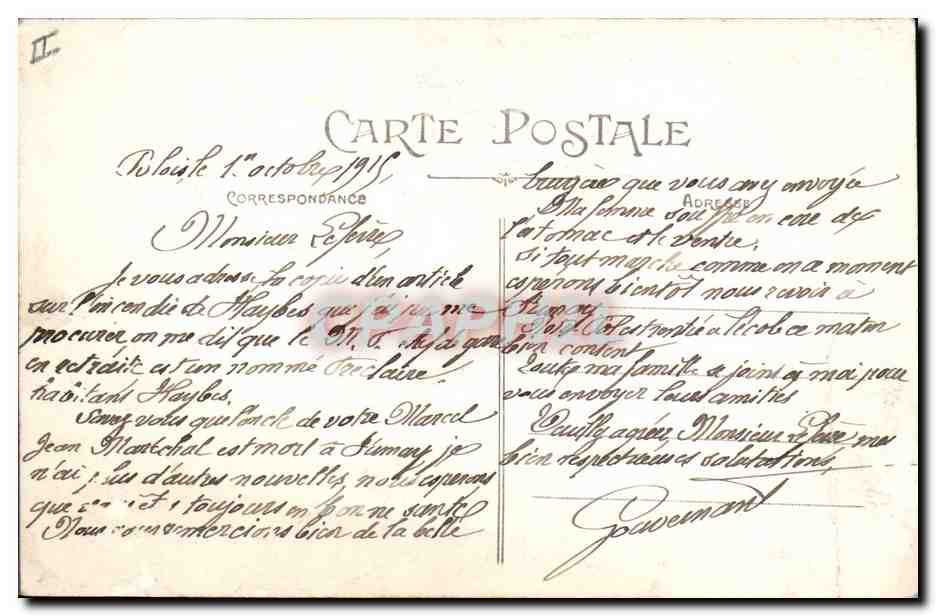 II
CARTE POSTALE
le 1er octobre 1915,
CORRESPONDANCE
Monsieur Lefèvre,
Je vous adresse la copie d'un article
sur l'incendie de Haybes que j'ai pu me
procurer on me dit que le M. F. de gare
en retraite est un nommé
habitant Haybes.
Savez vous que l'oncle de votre Marcel
Jean Maréchal est mort à Fumay, je
n'ai plus d'autres nouvelles, nous esperons
que toujours en bonne santé
Nous vous remercions bien de la belle
bruyère que vous avez envoyée
ADRESSE
Ma femme souffre encore de
l'estomac et le ventre.
Si tout marche comme en ce moment
espérons bientôt nous revoir à
Fumay.
est rentré à l'école ce matin
bien content
Toute ma famille se joint à moi pour
vous envoyer leurs amitiés
Veuillez agréer, Monsieur Lefèvre mes
bien respectueuses salutations,
Gouvernant